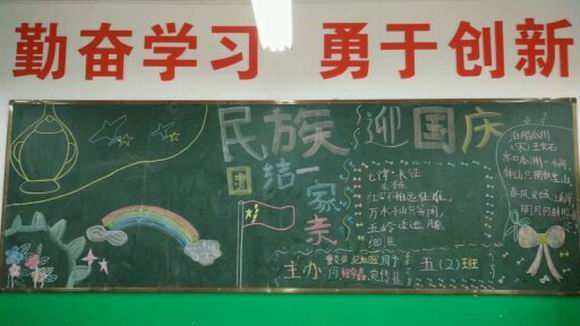 勤奋学习 勇于创新
民族
团结一
家亲
迎国庆
七律·长征
毛
红军不怕远征难,
万水千山只等闲,
五岭逶迤腾
细浪
泊船瓜洲
(宋)王安石
京口瓜洲一水间
钟山只隔数重山
春风又绿江南岸
明月何时照
主办
五(2)班